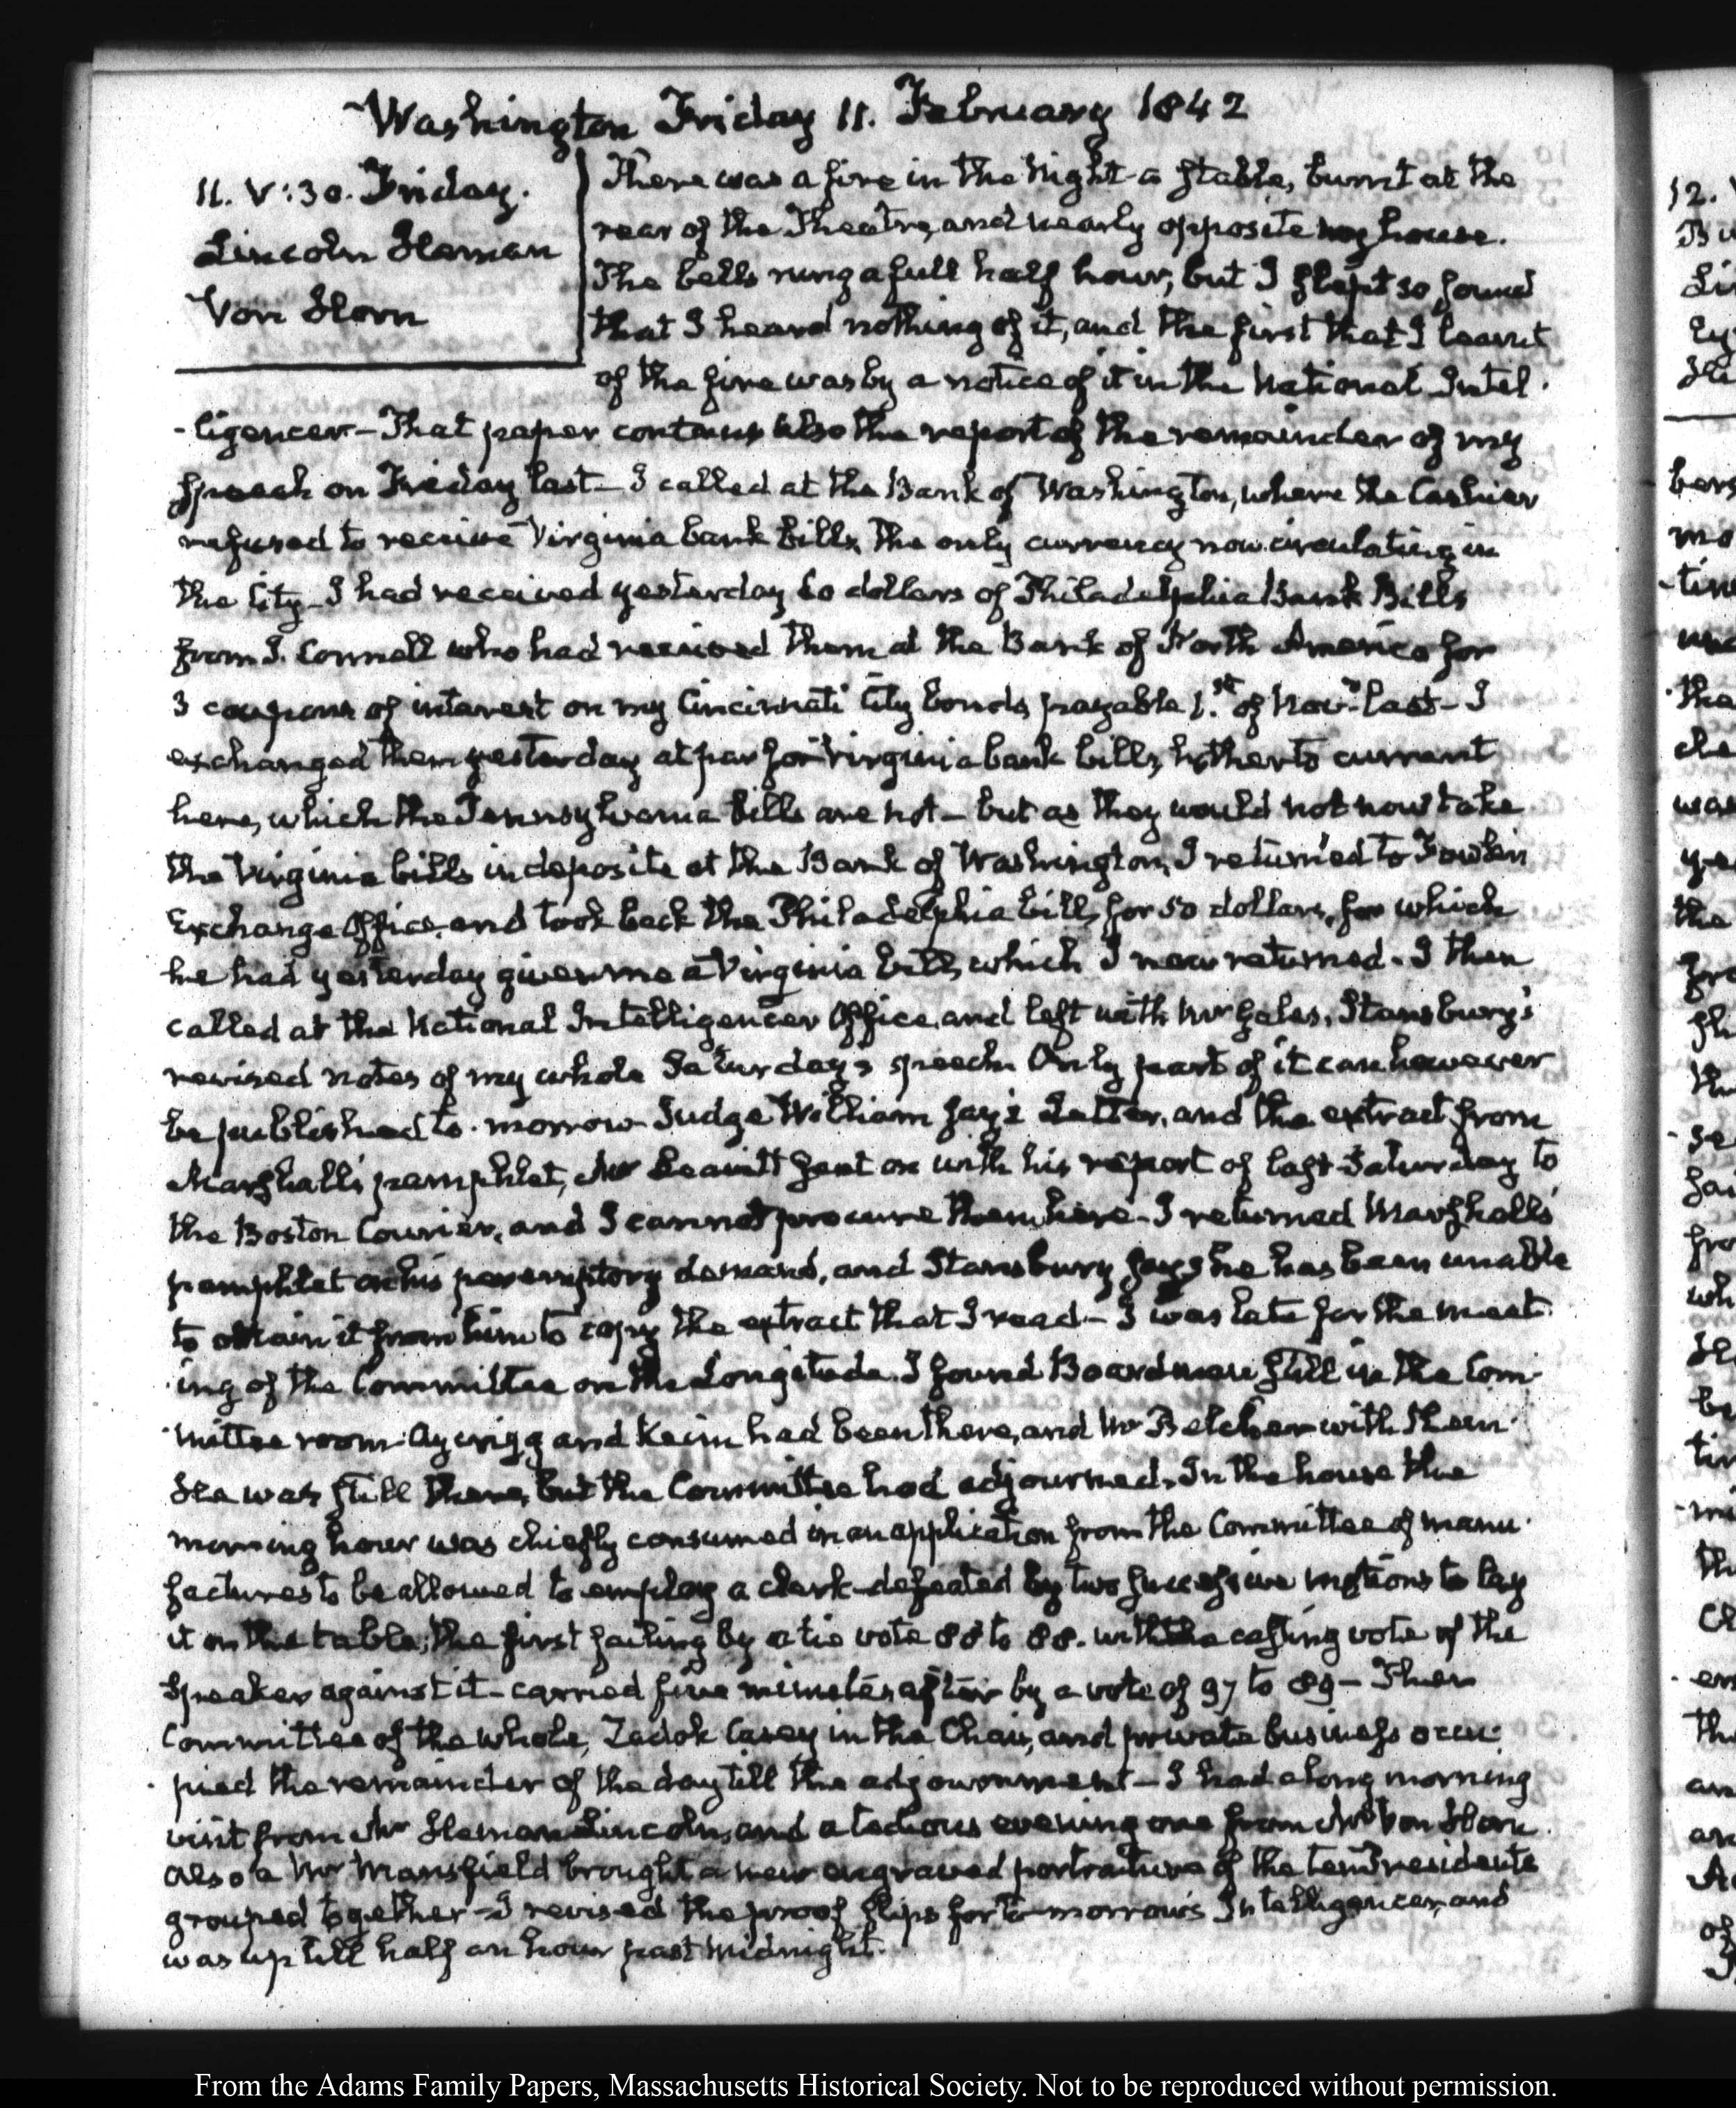 Washington Friday 11. February 1842
11. V:30. Friday.
Lincoln Heman
Von Horn
There was a fire in the Night a stable, burnt at the
rear of the Theatre, and nearly opposite my house.
The bells rung a full half hour, but I slept so sound
that I heard nothing of it, and the first that I learnt
of the fire was by a notice of it in the National Intel-
-ligencer — That paper contains also the report of the remainder of my
speech on Friday last — I called at the Bank of Washington, where the Cashier
refused to receive Virginia bank bills, the only currency now circulating in
the City — I had received yesterday 60 dollars of Philadelphia Bank Bills
from J. Connell who had received them at the Bank of North America for
3 coupons of interest on my Cincinnati City bonds, payable 1.st of Novr. last — I
exchanged them yesterday at par for Virginia bank bills, hitherto current
here, which the Pennsylvania bills are not — but as they would not now take
the Virginia bills in deposite at the Bank of Washington, I returned to
Exchange Office, and took back the Philadelphia bills, for 50 dollars, for which
he had yesterday given me a Virginia bill, which I now returned. I then
called at the National Intelligencer Office, and left with Mr Gales, Stansbury's
revised notes of my whole Saturday's speech. Only part of it can however
be published to-morrow Judge William Jay's Letter, and the extract from
Marshall's pamphlet, Mr Leavitt sent on with his report of last Saturday to
the Boston Courier, and I cannot procure them here — I returned Marshall's
pamphlet on his peremptory demand, and Stansbury says he has been unable
to obtain it from him to copy the extract that I read — I was late for the meet-
-ing of the Committee on the Longitude. I found Boardman still in the Com-
-mittee room. Aycrigg and Keim had been there, and Mr Belcher with them
He was still there, but the Committee had adjourned. In the house the
morning hour was chiefly consumed in an application from the Committee of manu-
factures to be allowed to employ a clerk — defeated by two successive motions to lay
it on the table; the first failing by a tie vote 88 to 88. with the casting vote of the
Speaker against it — carried five minutes after by a vote of 97 to 89 — Then
Committee of the whole, Zadok Casey in the Chair, and private business occu-
-pied the remainder of the day till the adjournment — I had a long morning
visit from Mr Heman Lincoln, and a tedious evening one from Mr Von Horn.
Also a Mr Mansfield brought a new engraved portraiture of the ten Presidents
grouped together — I revised the proof slips for to-morrow's Intelligencer, and
was up till half an hour past midnight.
From the Adams Family Papers, Massachusetts Historical Society. Not to be reproduced without permission.